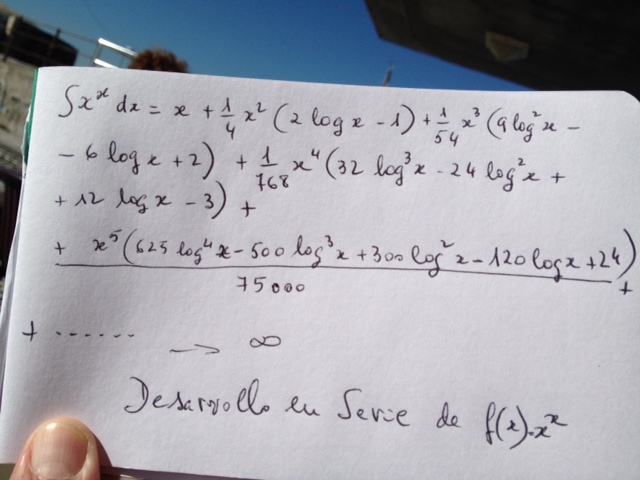 ∫x^x dx = x + 1/4 x² (2 log x - 1) + 1/54 x³ (9 log² x -
- 6 log x + 2) + 1/768 x⁴ (32 log³ x - 24 log² x +
+ 12 log x - 3) +
+ x⁵ (625 log⁴ x - 500 log³ x + 300 log² x - 120 log x + 24) / 75000 +
+ ...... → ∞
Desarrollo en Serie de f(x)=x^x